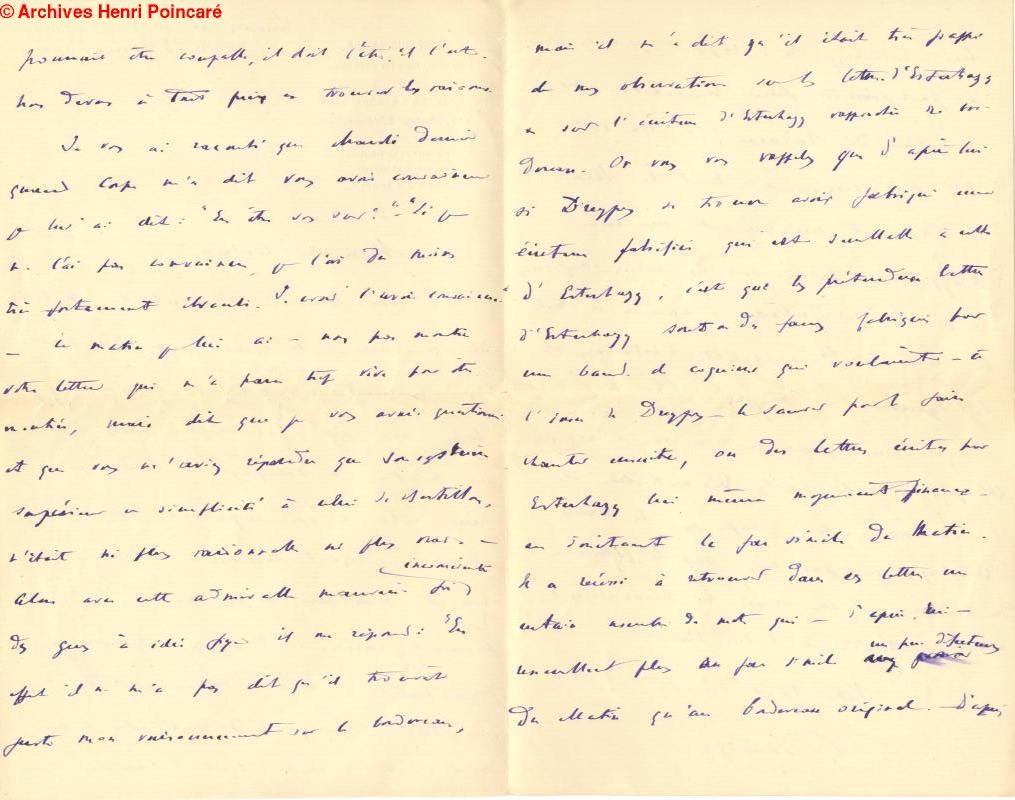 © Archives Henri Poincaré
pourrait être coupable, il doit l'être, il l'est.
Nous devons à tout prix en trouver les raisons.
Je vous ai raconté que Mardi dernier
quand Corps m'a dit vous avoir convaincu
je lui ai dit : "En êtes vous sur ?" - "Si je
ne l'ai pas convaincu, je l'ai du moins
très fortement ébranlé. Je crois l'avoir convaincu"
– Ce matin je lui ai – non pas montré
votre lettre qui m'a paru trop vive pour être
montrée, mais dit que je vous avais questionné
et que vous m'aviez répondu que son système
supérieur en simplicité à celui de Bertillon,
n'était ni plus raisonnable ni plus vrai –
inconsciente
Alors avec cette admirable mauvaise foi
des gens à idée fixe il me répond : "En
effet il ne m'a pas dit qu'il trouvait
juste mon raisonnement sur le bordereau,
mais il m'a dit qu'il était très frappé
de mes observations sur les lettres d'Esterhazy
et sur l'écriture d'Esterhazy rapprochée du bor-
dereau. Or vous vous rappelez que d'après lui
si Dreyfus se trouve avoir fabriqué une
écriture falsifiée qui est semblable à celle
d'Esterhazy, c'est que les prétendues lettres
d'Esterhazy sont ou des faux fabriqués par
une bande de coquins qui voulaient – à
l'insu de Dreyfus – le sauver pour le faire
chanter ensuite, ou des lettres écrites par
Esterhazy lui même moyennant finance –
en imitant le fac simile du Matin.
Il a réussi à retrouver dans ces lettres un
certain nombre de mots qui – d'après lui –
un peu défectueux
ressemblent plus au fac simile
du Matin qu'au bordereau original. – D'après